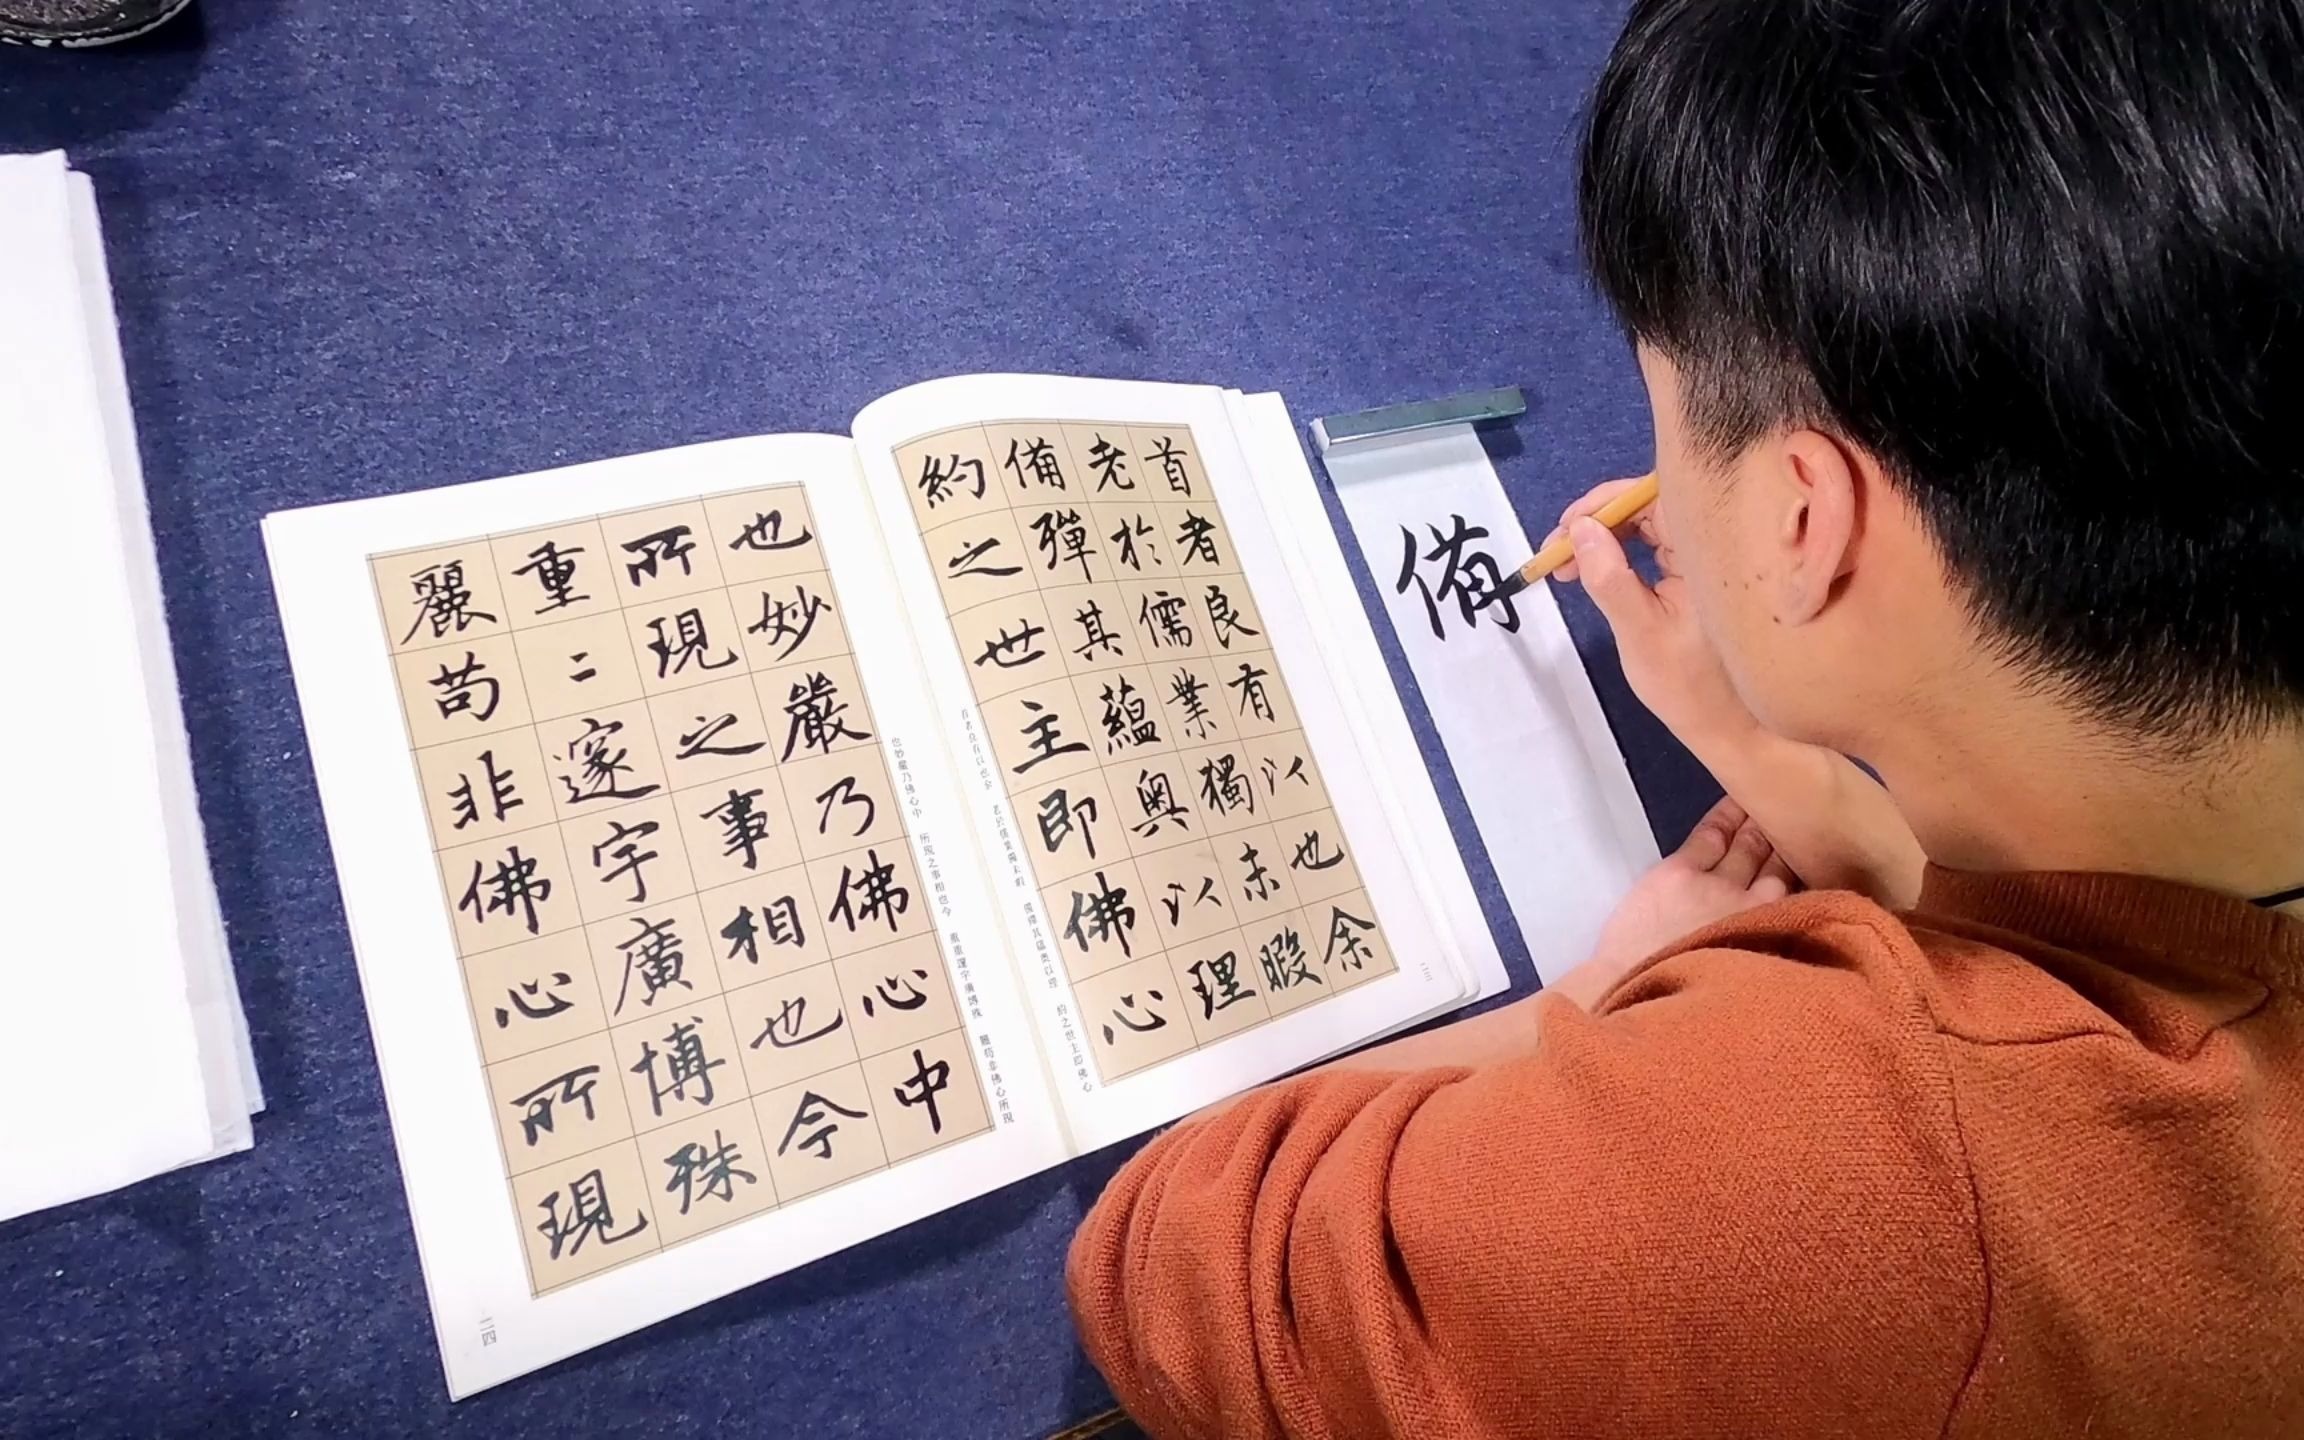 首者良有以也余
老於儒業獨未暇
備殫其蘊奧以理
約之世主即佛心
首者良有以也余　老於儒業獨未暇　備殫其蘊奧以理　約之世主即佛心
二三
也妙嚴乃佛心中
所現之事相也今
重二邃宇廣博殊
麗苟非佛心所現
也妙嚴乃佛心中　所現之事相也今　重重邃宇廣博殊　麗苟非佛心所現
二四
備